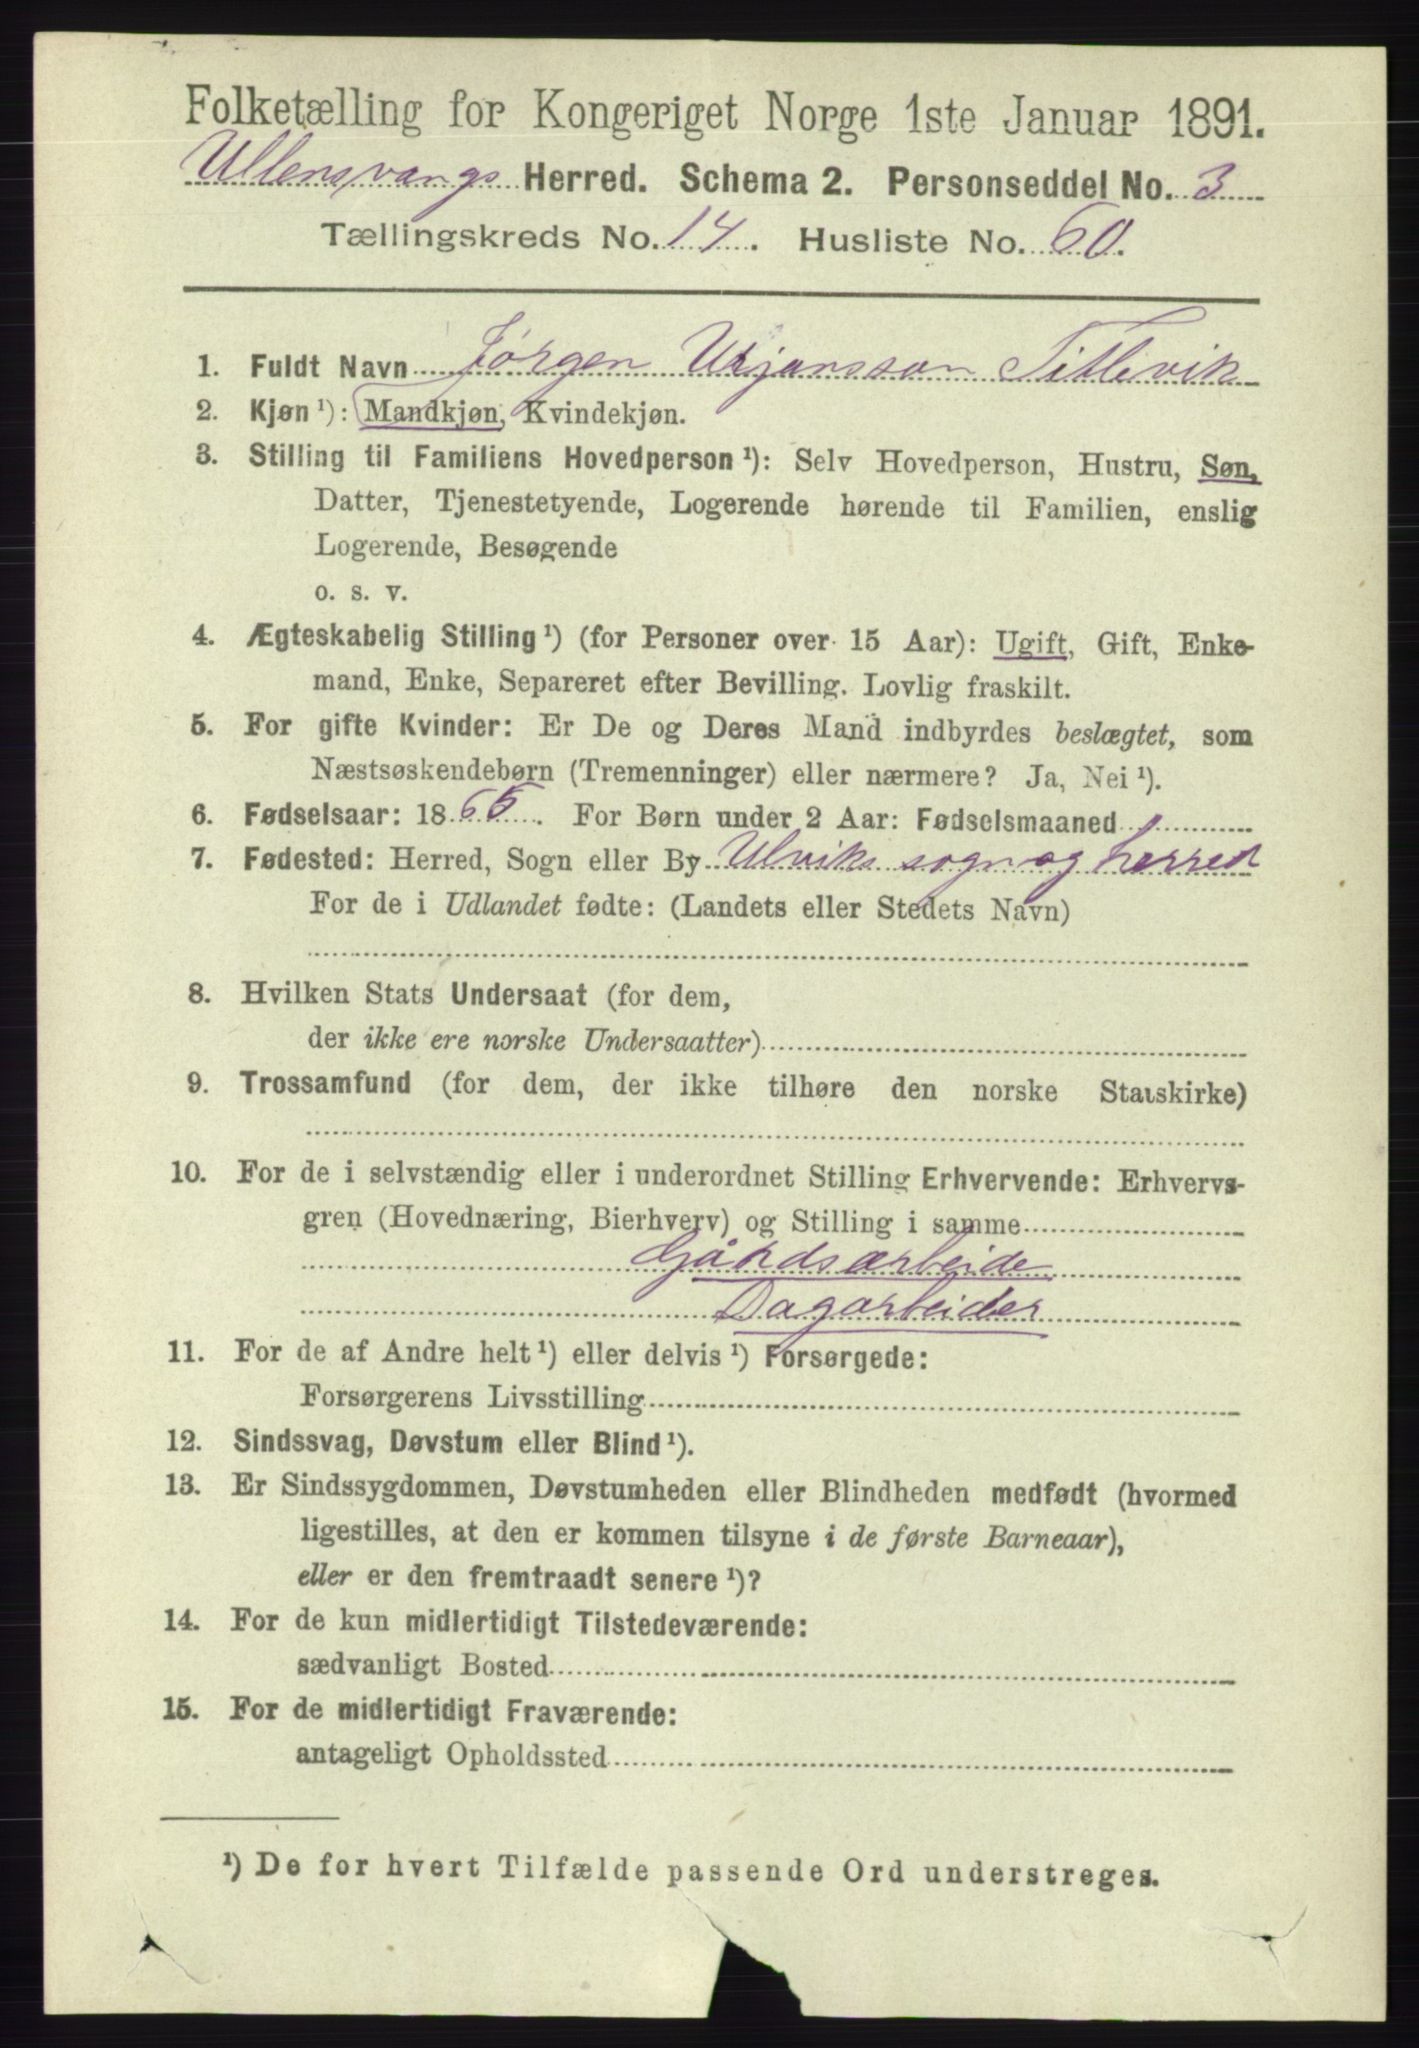 Folketælling for Kongeriget Norge 1ste Januar 1891.
Ullensvangs Herred. Schema 2. Personseddel No. 3
Tællingskreds No. 14. Husliste No. 60.
1. Fuldt Navn Jørgen Urjansson Titlevik
2. Kjøn ¹): Mandkjøn, Kvindekjøn.
3. Stilling til Familiens Hovedperson ¹): Selv Hovedperson, Hustru, Søn,
Datter, Tjenestetyende, Logerende hørende til Familien, enslig
Logerende, Besøgende
o. s. v.
4. Ægteskabelig Stilling ¹) (for Personer over 15 Aar): Ugift, Gift, Enke-
mand, Enke, Separeret efter Bevilling. Lovlig fraskilt.
5. For gifte Kvinder: Er De og Deres Mand indbyrdes beslægtet, som
Næstsøskendebørn (Tremenninger) eller nærmere? Ja, Nei ¹).
6. Fødselsaar: 1865. For Børn under 2 Aar: Fødselsmaaned
7. Fødested: Herred, Sogn eller By Ulviks sogn og herred
For de i Udlandet fødte: (Landets eller Stedets Navn)
8. Hvilken Stats Undersaat (for dem,
der ikke ere norske Undersaatter)
9. Trossamfund (for dem, der ikke tilhøre den norske Statskirke)
10. For de i selvstændig eller i underordnet Stilling Erhvervende: Erhvervs-
gren (Hovednæring, Bierhverv) og Stilling i samme
Gårdsarbeide
Dagarbeider
11. For de af Andre helt ¹) eller delvis ¹) Forsørgede:
Forsørgerens Livsstilling
12. Sindssvag, Døvstum eller Blind ¹).
13. Er Sindssygdommen, Døvstumheden eller Blindheden medfødt (hvormed
ligestilles, at den er kommen tilsyne i de første Barneaar),
eller er den fremtraadt senere ¹)?
14. For de kun midlertidigt Tilstedeværende:
sædvanligt Bosted
15. For de midlertidigt Fraværende:
antageligt Opholdssted
¹) De for hvert Tilfælde passende Ord understreges.